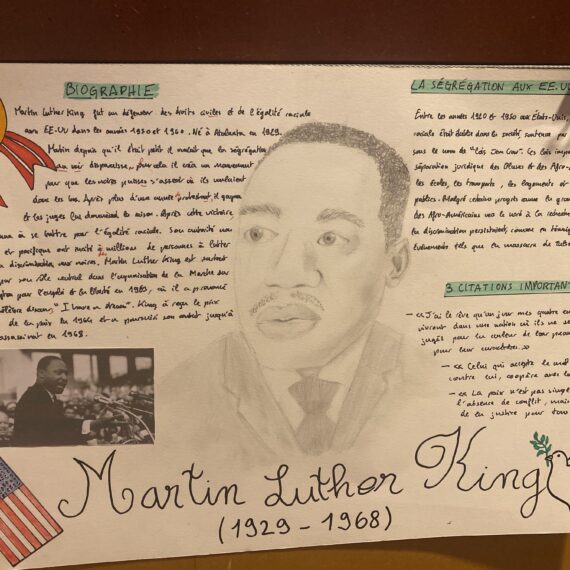 BIOGRAPHIE
Martin Luther King fut un défenseur des droits civiles et de l'égalité raciale
aux EE.UU dans les années 1950 et 1960. Né à Atalanta en 1929.
Matin depuis qu'il était petit il voulait que la ségrégation
au noir disparaisse, pour cela il créa un mouvement
pour que les noires puisses s'assoir où ils voulaient
dans les bus. Après plus d'une année protestant, il gagna
et les juges lui donnèrent la raison. Après cette victoire
à se battre pour l'égalité raciale. Son autorité
et pacifique ont invité à millions de personnes à lutter
la discrimination aux noires. Martin Luther King est surtout
pour son rôle central dans l'organisation de la Marche sur
pour l'emploi et la liberté en 1963, où il a prononcé
célèbre discours, "I have a dream". King a reçu le prix
de la paix en 1964 et a poursuivi son combat jusqu'à
assassinat en 1968.
LA SÉGRÉGATION AUX EE.UU
Entre les années 1910 et 1950 aux États-Unis,
raciale était établie dans la société, soutenue par
sous le nom de "Lois Jim Crow". Ces lois
séparation juridique des Blancs et des Afro-
les écoles, les transports, les logements et
publics. Malgré certains progrès comme la
des Afro-Américains vers le nord à la recherche
la discrimination persistait, comme en témoig
événements tels que le massacre de Tuls
3 CITATIONS IMPORTAN
- << J'ai le rêve qu'un jour mes quatre en
vivront dans une nation où ils ne se
jugés pour la couleur de leur peau
pour leur caractère. >>
- << Celui qui accepte le mal
contre lui, coopère avec lu
- << La paix n'est pas simple
l'absence de conflit, mais
de la justice pour tou
Martin Luther King
(1929 - 1968)